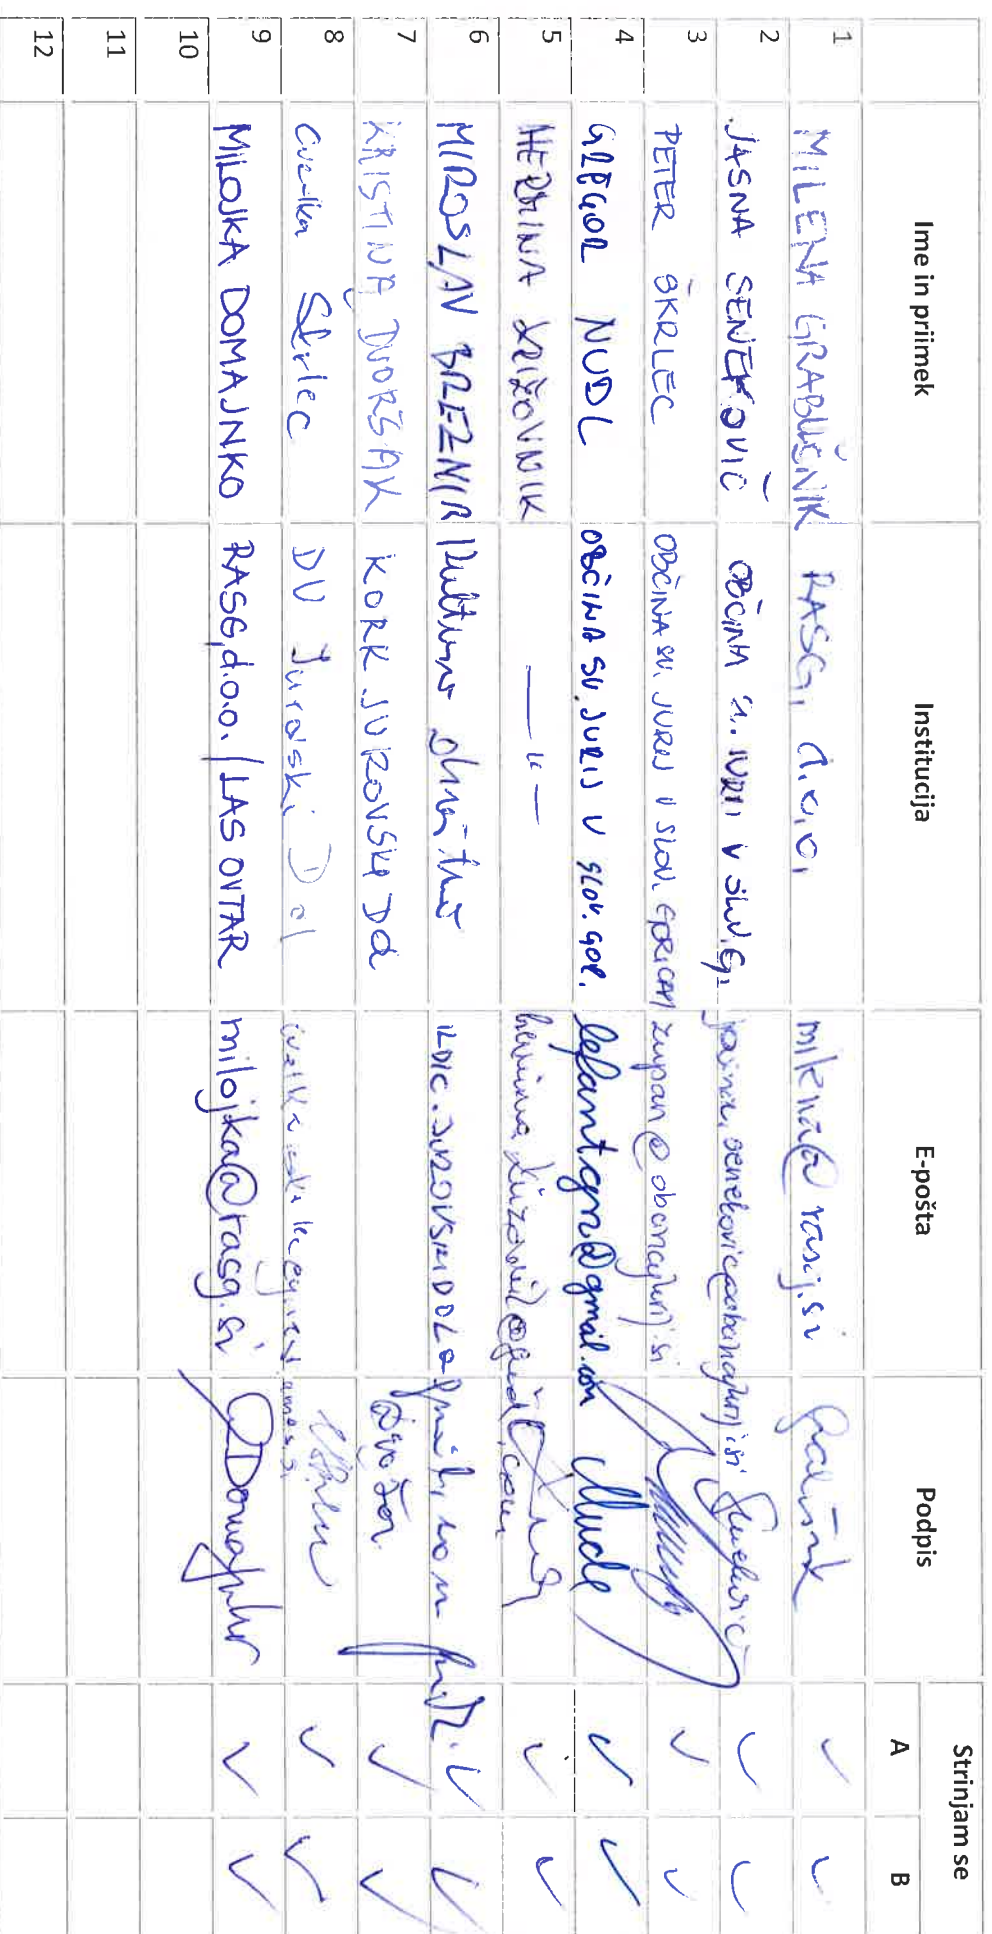 Ime in priimek Institucija E-pošta Podpis Strinjam se
A B
1 MILENA GRABUŠNIK RASG, d.o.o.
2 JASNA SENEKOVIČ OBČINA SV. JURIJ V SLOV. G.
3 PETER ŠKRLEC OBČINA SV. JURIJ V SLOV. GORICAH zupan@obcinajurij.si
4 GREGOR NUDL OBČINA SV. JURIJ V SLOV. GOR. lefantgn@gmail.com
5 HERMINA KRIŽOVNIK —"—
6 MIROSLAV BREZNIK Kulturno društvo
7 KRISTINA DVORŠAK KORK JUROVSKI DOL
8 Cvetka Škrlec DU Jurovski Dol
9 MILOJKA DOMAJNKO RASG, d.o.o. / LAS OVTAR milojka@rasg.si
10
11
12